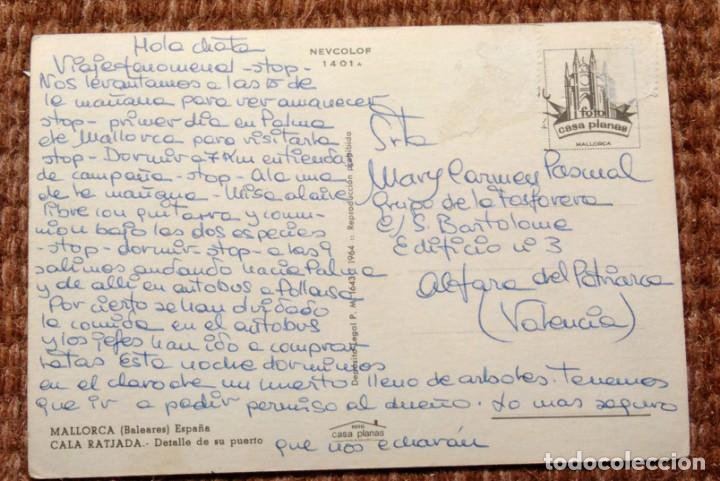 Hola chata
Viaje fenomenal -stop-
Nos levantamos a las 5 de
la mañana para ver amanecer
stop - primer dia en Palma
de Mallorca para visitarla
stop - Dormir a 7 Km en tienda
de campaña - stop - A la una
de la mañana - Misa al aire
libre con guitarra y comu-
nion bajo las dos especies
-stop - dormir - stop - a las 9
salimos andando hacia Palma
y de alli en autobus a Pollensa
Por cierto se han olvidado
la comida en el autobus
y los jefes han ido a comprar
latas Esta noche dormimos
en el claro de un huerto lleno de arboles. Tenemos
que ir a pedir permiso al dueño. Lo mas seguro
que nos echarán
NEVCOLOR
1401 A
Depósito Legal P. M. 1964 :: Reproducción prohibida
foto
casa planas
MALLORCA
Srta
Mary Carmen Pascual
Grupo de la Fosforera
C/ S. Bartolome
Edificio nº 3
Alfara del Patriarca
(Valencia)
MALLORCA (Baleares) España
CALA RATJADA.- Detalle de su puerto
FOTO
casa planas
todocoleccion.net